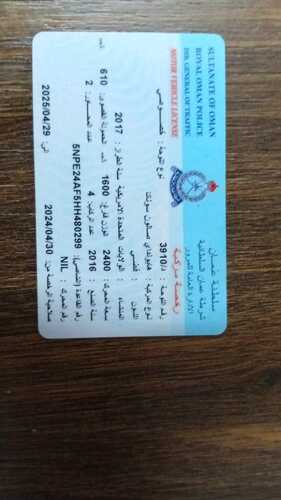 سلطنة عمان SULTANATE OF OMAN
شرطة عمان السلطانية ROYAL OMAN POLICE
الإدارة العامة للمرور DIR. GENERAL OF TRAFFIC
رخصة مركبة MOTOR VEHICLE LICENSE
رقم اللوحة : 3910/ نوع اللوحة : خصوصي
نوع المركبة : هيونداي صالون سوناتا
اللون : فضي
المنشاء : الولايات المتحدة الامريكية سنة الطراز : 2017
سعة المحرك : 2400 الوزن فارغ : 1600 الحمولة القصوى : 610
سنة الصنع : 2016 عدد الركاب : 4 عدد المحاور : 2
رقم القاعدة (الشاصي) : 5NPE24AF5HH480299
رقم المحرك : NIL
صلاحية الرخصة من : 2024/04/30 الى : 2025/04/29